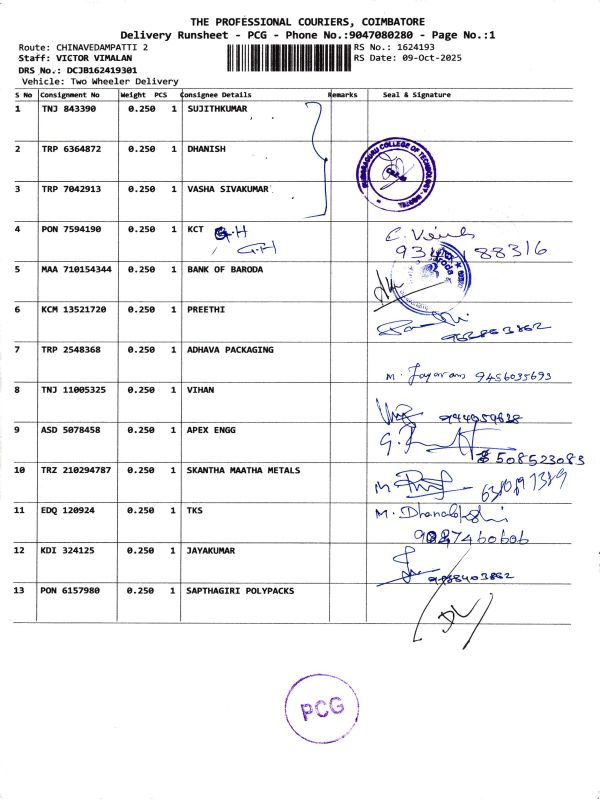 THE PROFESSIONAL COURIERS, COIMBATORE
Delivery Runsheet - PCG - Phone No.:9047080280 - Page No.:1
Route: CHINAVEDAMPATTI 2 RS No.: 1624193
Staff: VICTOR VIMALAN RS Date: 09-Oct-2025
DRS No.: DCJB162419301
Vehicle: Two Wheeler Delivery
S No Consignment No Weight PCS Consignee Details Remarks Seal & Signature
1 TNJ 843390 0.250 1 SUJITHKUMAR
2 TRP 6364872 0.250 1 DHANISH
3 TRP 7042913 0.250 1 VASHA SIVAKUMAR
4 PON 7594190 0.250 1 KCT G.H
G-H
88316
5 MAA 710154344 0.250 1 BANK OF BARODA
6 KCM 13521720 0.250 1 PREETHI
7 TRP 2548368 0.250 1 ADHAVA PACKAGING
M. Jayaram 9456035693
8 TNJ 11005325 0.250 1 VIHAN
9 ASD 5078458 0.250 1 APEX ENGG
8508523083
10 TRZ 210294787 0.250 1 SKANTHA MAATHA METALS
11 EDQ 120924 0.250 1 TKS
M. Dhanalakshmi
12 KDI 324125 0.250 1 JAYAKUMAR
13 PON 6157980 0.250 1 SAPTHAGIRI POLYPACKS
DL
PCG